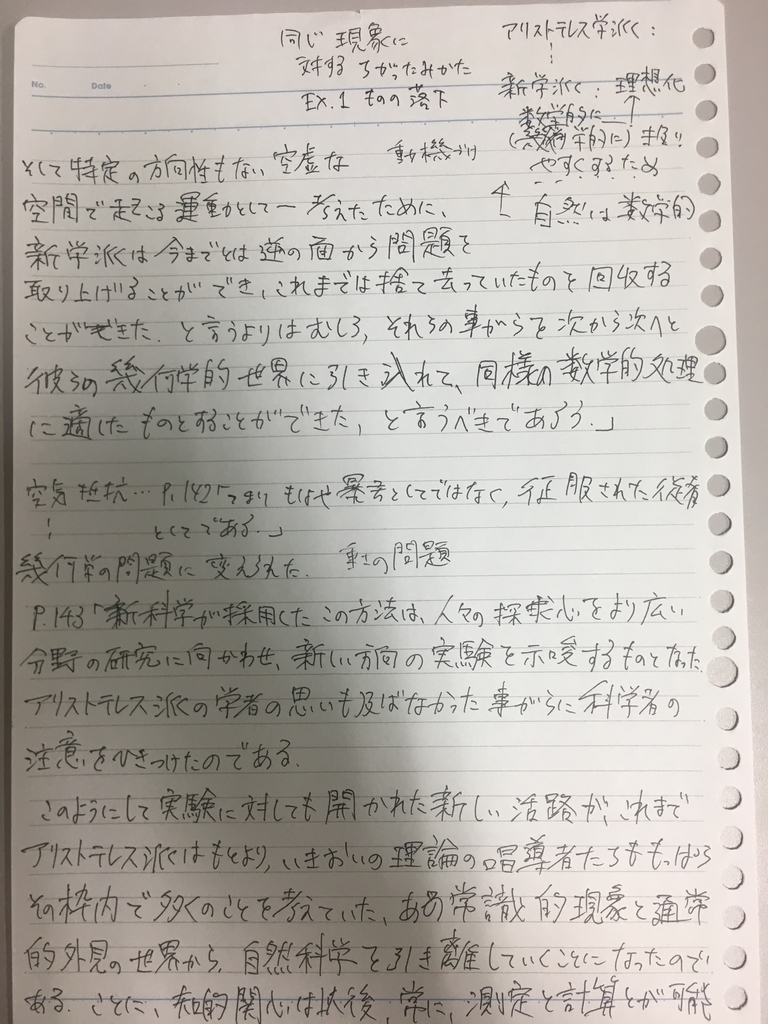 同じ 現象に
対する ちがったみかた
Ex.1 ものの落下
アリストテレス学派:
新学派: 理想化
数学的に
(幾何学的に) 扱い
やすくするため
自然は数学的
No. Date
動機づけ
そして特定の方向性もない空虚な
空間で起こる運動として一考えたために、
新学派は今までとは逆の面から問題を
取り上げることができ、これまでは捨て去っていたものを回収する
ことができた. と言うよりはむしろ, それらの事がらを次から次へと
彼らの幾何学的世界に引き入れて、同様の数学的処理
に適したものとすることができた, と言うべきであろう.」
空気抵抗… P.142「つまりもはや暴君としてではなく, 征服された従者
としてである.」
幾何学の問題に変えられた. 動きの問題
P.143「新科学が採用したこの方法は, 人々の探求心をより広い
分野の研究に向かわせ、新しい方向の実験を示唆するものとなった.
アリストテレス派の学者の思いも及ばなかった事がらに科学者の
注意をひきつけたのである.
このようにして実験に対しても開かれた新しい活路が, これまで
アリストテレス派はもとより, いきおいの理論の唱導者たちももっぱら
その枠内で多くのことを考えていた, ある常識的現象と通常
的外見の世界から, 自然科学を引き離していくことになったので
ある. ことに, 知的関心は以後, 常に, 測定と計算とが可能